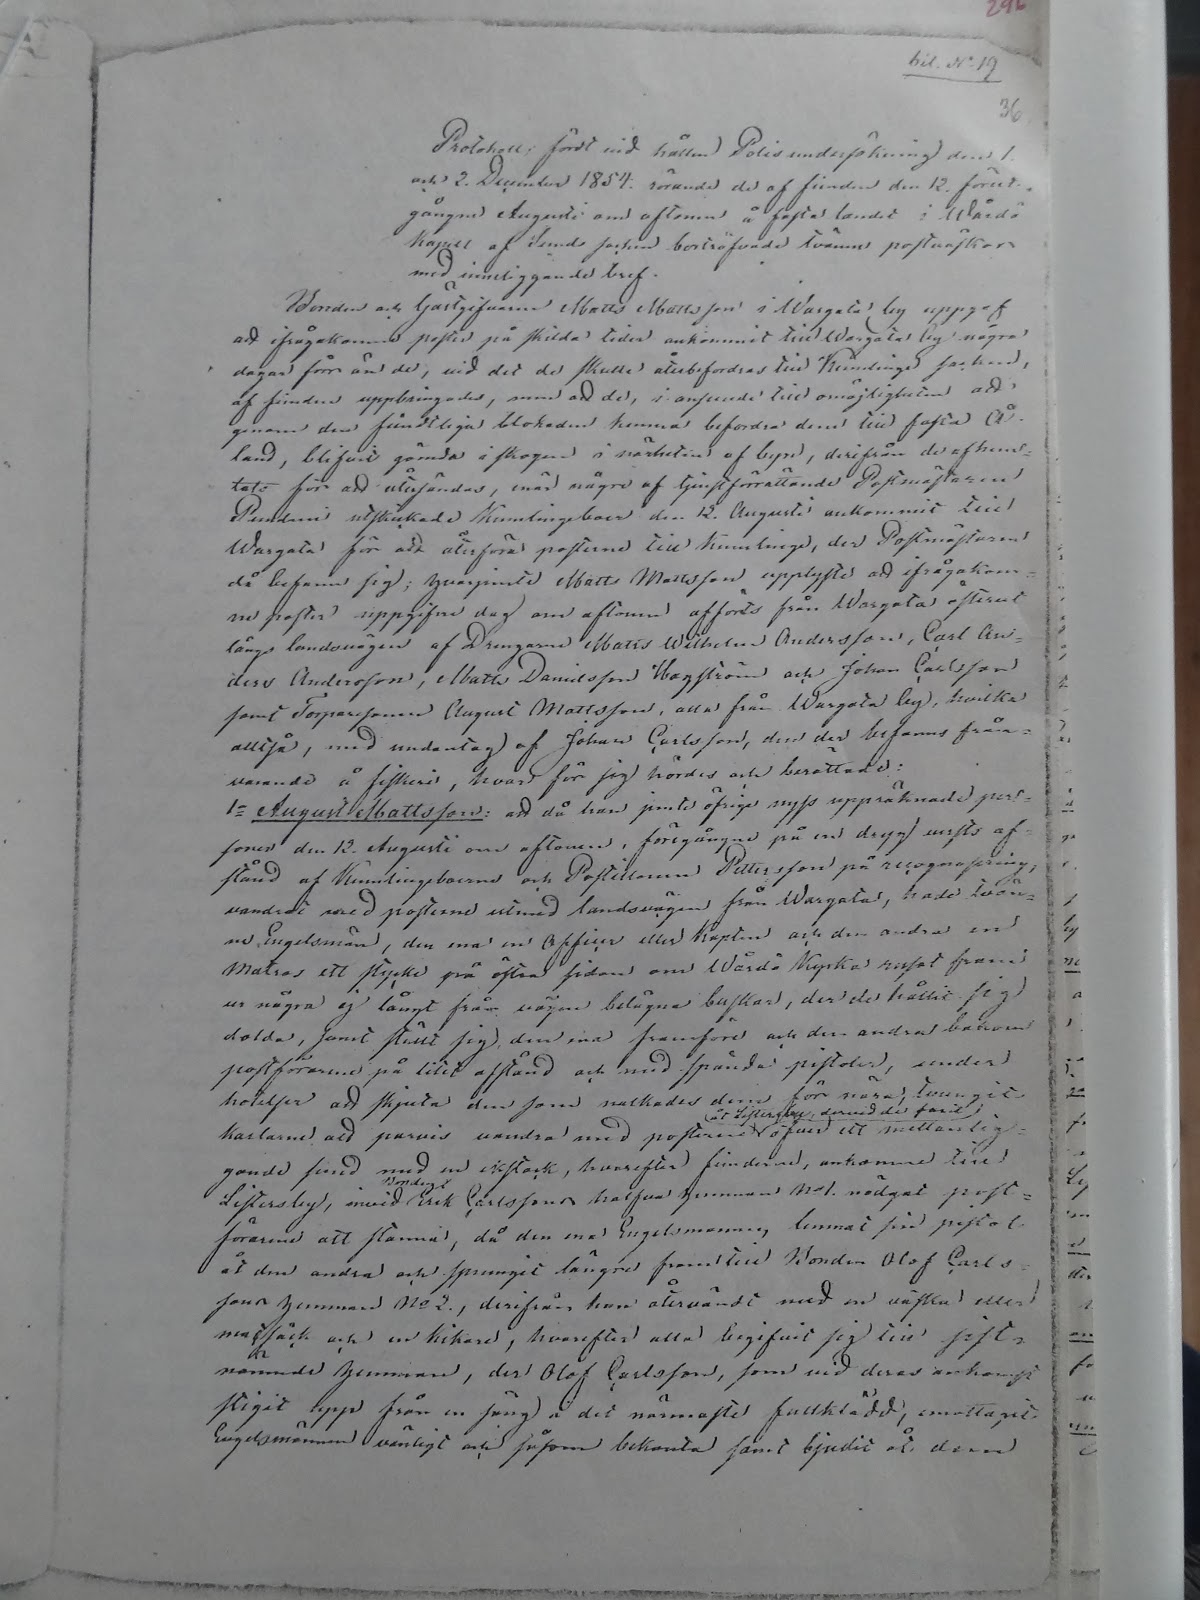 296
bil. No 19
36
Protokoll, fördt vid hållen Polisundersökning den 1.
och 2. December 1854. rörande de af fienden den 12. förut-
gångne Augusti om aftonen å fasta landet i Wårdö
Kapell af Sunds socken bortröfvade tvänne postväskor
med inneliggande bref.
Bonden och Gästgifvaren Matts Mattsson i Wargata by uppgaf
att ifrågakomne poster på skilda tider ankommit till Wargata by några
dagar förr än de, vid det de skulle återbefordras till Kumlinge socken,
af fienden uppbringades, men att de, i anseende till omöjligheten att
genom den fiendtliga blokaden kunna befordra dem till fasta Å-
land, blifvit gömda i skogen i närheten af byn, derifrån de afhem-
tats för att återsändas, enär några af tjenstförrättande Postmästaren
utskickade Kumlingeboer den 12. Augusti ankommit till
Wargata för att återföra posterne till Kumlinge, der Postmästaren
då befann sig; hvarjemte Matts Mattsson upplyste att ifrågakom-
ne poster uppgifne dag om aftonen afförts från Wargata österut
längs landsvägen af Drengarne Matts Wilhelm Andersson, Carl An-
ders Andersson, Matts Danielsson Hagström och Johan Carlsson
samt Torparesonen August Mattsson, alla från Wargata by, hvilka
alltså, med undantag af Johan Carlsson, den der befanns från-
varande å fiskeri, hvar för sig hördes och berättade:
1o August Mattsson: att då han jemte öfrige nyss uppräknade per-
soner den 12. Augusti om aftonen, föregångne på en dryg versts af-
stånd af Kumlingeboerne och Postiljonen Pettersson på recognosering,
vandrat med posterne utmed landsvägen från Wargata, hade tvän-
ne Engelsmän, den ena en Officer eller Kapten och den andra en
Matros ett stycke på östra sidan om Wårdö Kyrka rusat fram
ur några ej långt från vägen belägna buskar, der de hållit sig
dolda, samt ställt sig, den ena framföre och den andra bakom
postförarene på litet afstånd och med spända pistoler, under
hotelser att skjuta den som nalkades dem för nära, tvungit
karlarne att parvis vandra med posterne åt Listersby, dervid de farit öfver ett mellanlig-
gande sund med en ekstock, hvarefter fienderne, ankomne till
Listersby, invid Bonden Erik Carlssons halfva hemman No 1. nödgat post-
förarene att stanna, då den ena Engelsmannen lemnat sin pistol
åt den andra och sprungit längre fram till Bonden Olof Carls-
sons hemman No 2., derifrån han återvändt med en väska eller
matsäck och en kikare, hvarefter alla begifvit sig till sist-
nämnde hemman, der Olof Carlsson, som vid deras ankomst
stigit upp från en säng å det närmaste fullklädd, emottagit
Engelsmännen vänligt och såsom bekanta samt bjudit åt dem